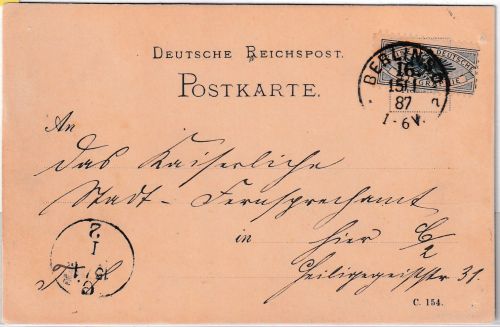 DEUTSCHE REICHSPOST.
POSTKARTE.
BERLIN
16
15/1
87
1-6N.
DEUTSCHE
An
das Kaiserliche
Stadt-Fernsprechamt
in hier C/2
Heiligegeiststr 31.
C. 154.